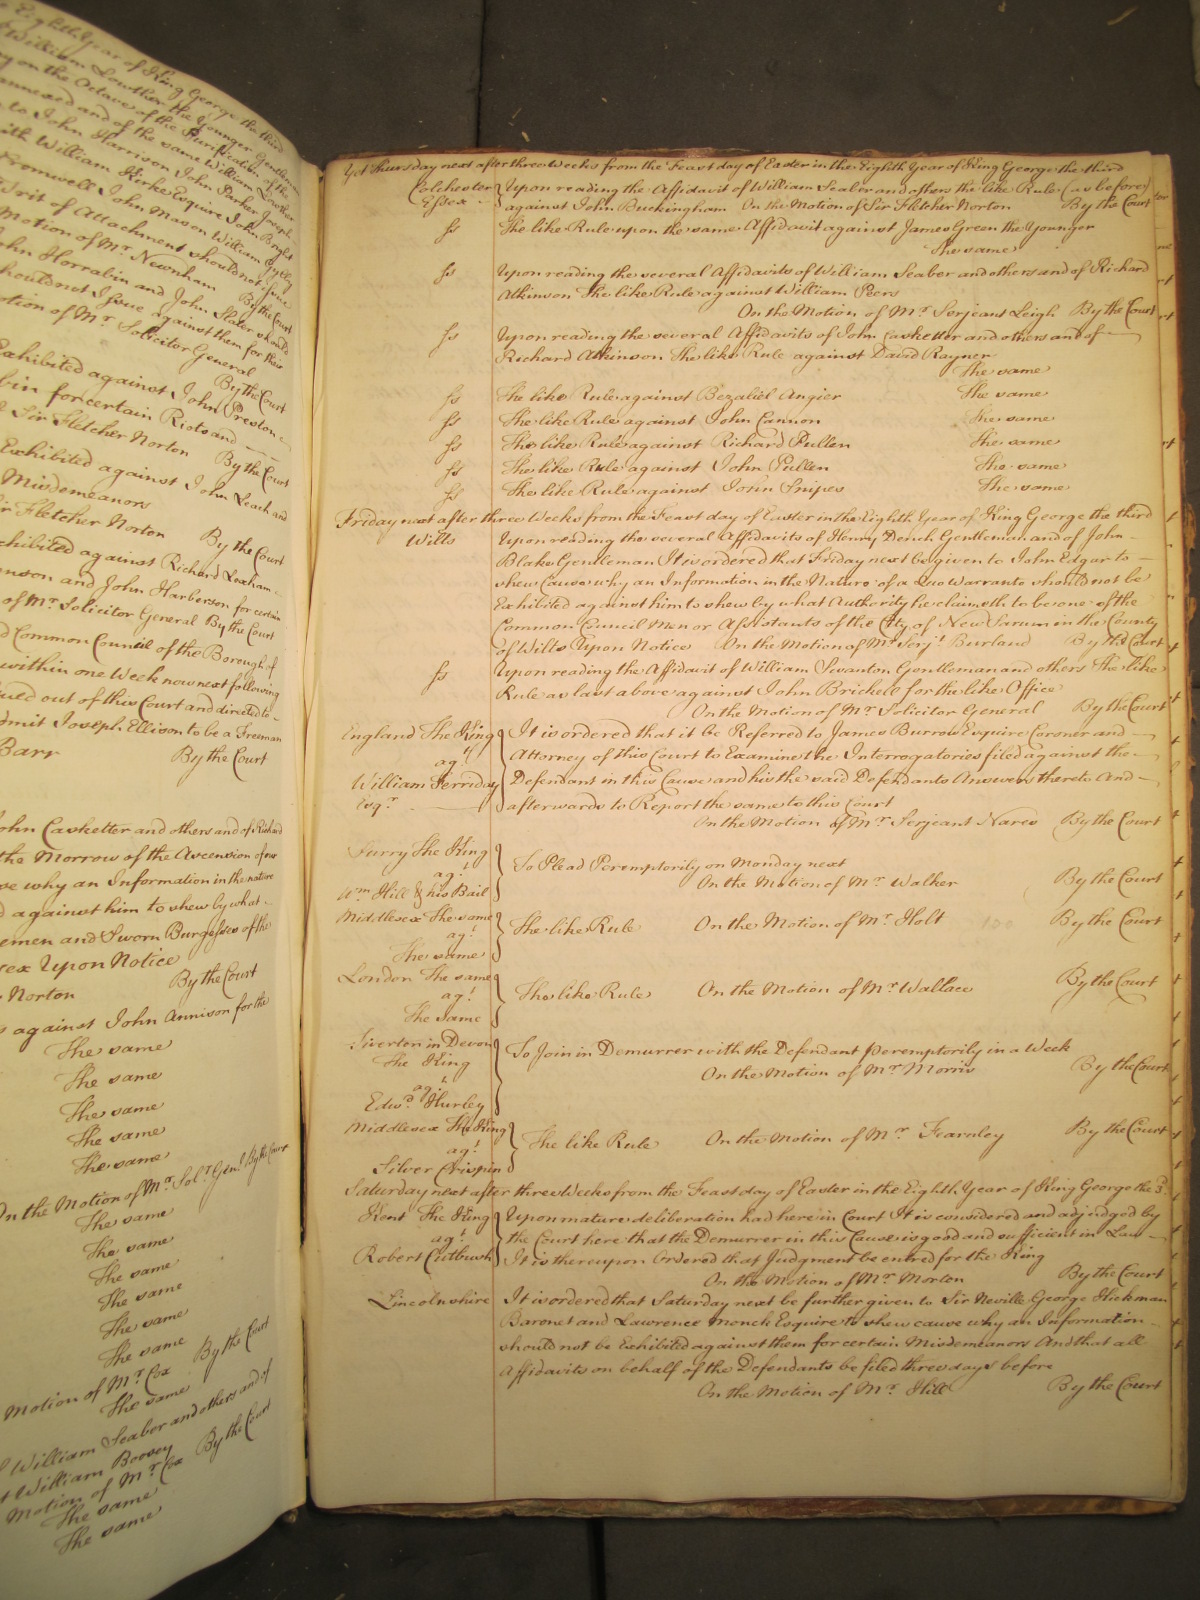 Eighth Year of King George the third
William Lowther the Younger Gentleman
on the Octave of the Purification of the
annexed and of the same William Lowther
to John Harrison John Parker Joseph
with William Kirke Esquire John Bright
Cromwell John Mason William
Writ of Attachment should not issue
Motion of Mr. Newnham By the Court
John Horrabin and John Slater should
should not Issue against them for their
Motion of Mr. Solicitor General By the Court
Exhibited against John Preston
bin for certain Riots and
Sir Fletcher Norton By the Court
Exhibited against John Leach and
Misdemeanors
Sir Fletcher Norton By the Court
Exhibited against Richard Loxham
nson and John Harberson for certain
of Mr. Solicitor General By the Court
d Common Council of the Borough of
within one Week now next following
sued out of this Court and directed to
admit Joseph Ellison to be a Freeman
Barr By the Court
John Casketter and others and of Richard
the Morrow of the Ascension of our
se why an Information in the nature
d against him to shew by what
emen and Sworn Burgesses of the
sex Upon Notice
Norton By the Court
s against John Annison for the
The same
The same
The same
The same
The same
On the Motion of Mr. Solr. Genl. By the Court
The same
The same
The same
The same
The same
The same
Motion of Mr. Cox By the Court
The same
William Seaber and others and of
t William Boosey
Motion of Mr. Cox By the Court
The same
The same
Yet Thursday next after three Weeks from the Feast day of Easter in the Eighth Year of King George the third
Colchester Upon reading the Affidavit of William Sealer and others the like Rule (as before)
Essex against John Buckingham On the Motion of Sir Fletcher Norton By the Court
ss The like Rule upon the same Affidavit against James Green the Younger
The same
ss Upon reading the several Affidavits of William Seaber and others and of Richard
Atkinson The like Rule against William Peers
On the Motion of Mr. Serjeant Leigh By the Court
ss Upon reading the several Affidavits of John Casketter and others and of
Richard Atkinson The like Rule against David Rayner
The same
ss The like Rule against Bezaliel Angier The same
ss The like Rule against John Cannon The same
ss The like Rule against Richard Pullen The same
ss The like Rule against John Pullen The same
ss The like Rule against John Snipes The same
Friday next after three Weeks from the Feast day of Easter in the Eighth Year of King George the third
Wilts Upon reading the several Affidavits of Henry Dench Gentleman and of John
Blake Gentleman It is ordered that Friday next be given to John Edgar to
shew Cause why an Information in the Nature of a Quo Warranto should not be
Exhibited against him to shew by what Authority he claimeth to be one of the
Common Council Men or Assistants of the City of New Sarum in the County
of Wilts Upon Notice On the Motion of Mr. Serjt. Burland By the Court
ss Upon reading the Affidavit of William Swanton Gentleman and others The like
Rule as last above against John Brickell for the like Office
On the Motion of Mr. Solicitor General By the Court
England The King It is ordered that it be Referred to James Burrow Esquire Coroner and
agt. Attorney of this Court to Examine the Interrogatories filed against the
William Ferriday Defendant in this Cause and his the said Defendants Answers thereto And
Esqr. afterwards to Report the same to this Court
On the Motion of Mr. Serjeant Nares By the Court
Surry The King
agt. To Plead Peremptorily on Monday next
Wm. Hill & his Bail On the Motion of Mr. Walker By the Court
Middlesex The same
agt. The like Rule On the Motion of Mr. Holt By the Court
The same
London The same
agt. The like Rule On the Motion of Mr. Wallace By the Court
The Same
Tiverton in Devon To Join in Demurrer with the Defendant Peremptorily in a Week
The King On the Motion of Mr. Morris By the Court
agt.
Edwd. Hurley
Middlesex The King
agt. The like Rule On the Motion of Mr. Fearnley By the Court
Silver Crispin
Saturday next after three Weeks from the Feast day of Easter in the Eighth Year of King George the 3d.
Kent The King Upon mature deliberation had here in Court It is considered and adjudged by
agt. the Court here that the Demurrer in this Cause is good and sufficient in Law
Robert Cutbush It is thereupon Ordered that Judgment be entred for the King
On the Motion of Mr. Morton By the Court
Lincolnshire It is ordered that Saturday next be further given to Sir Neville George Hickman
Baronet and Lawrence Monck Esquire to shew cause why an Information
should not be Exhibited against them for certain Misdemeanors And that all
Affidavits on behalf of the Defendants be filed three days before
On the Motion of Mr. Hill By the Court